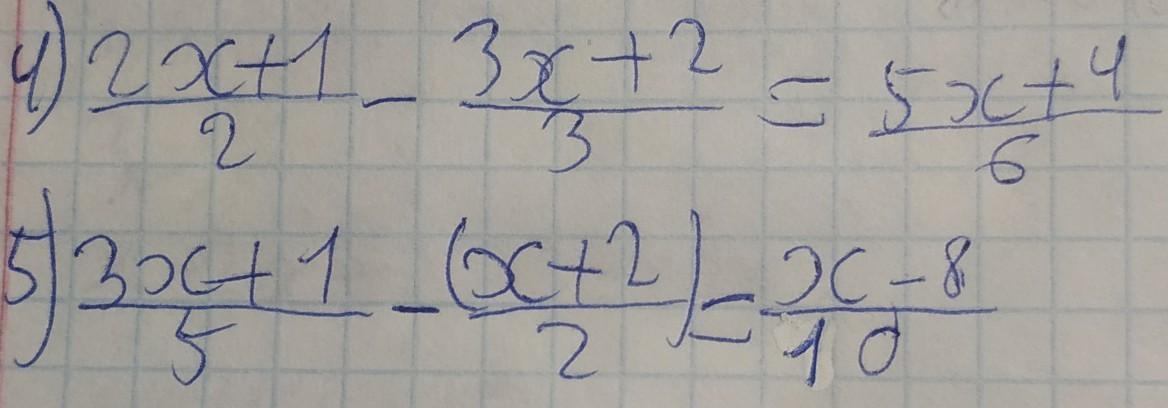 4) (2x+1)/2 - (3x+2)/3 = (5x+4)/6
5) (3x+1)/5 - ((x+2)/2) = (x-8)/10